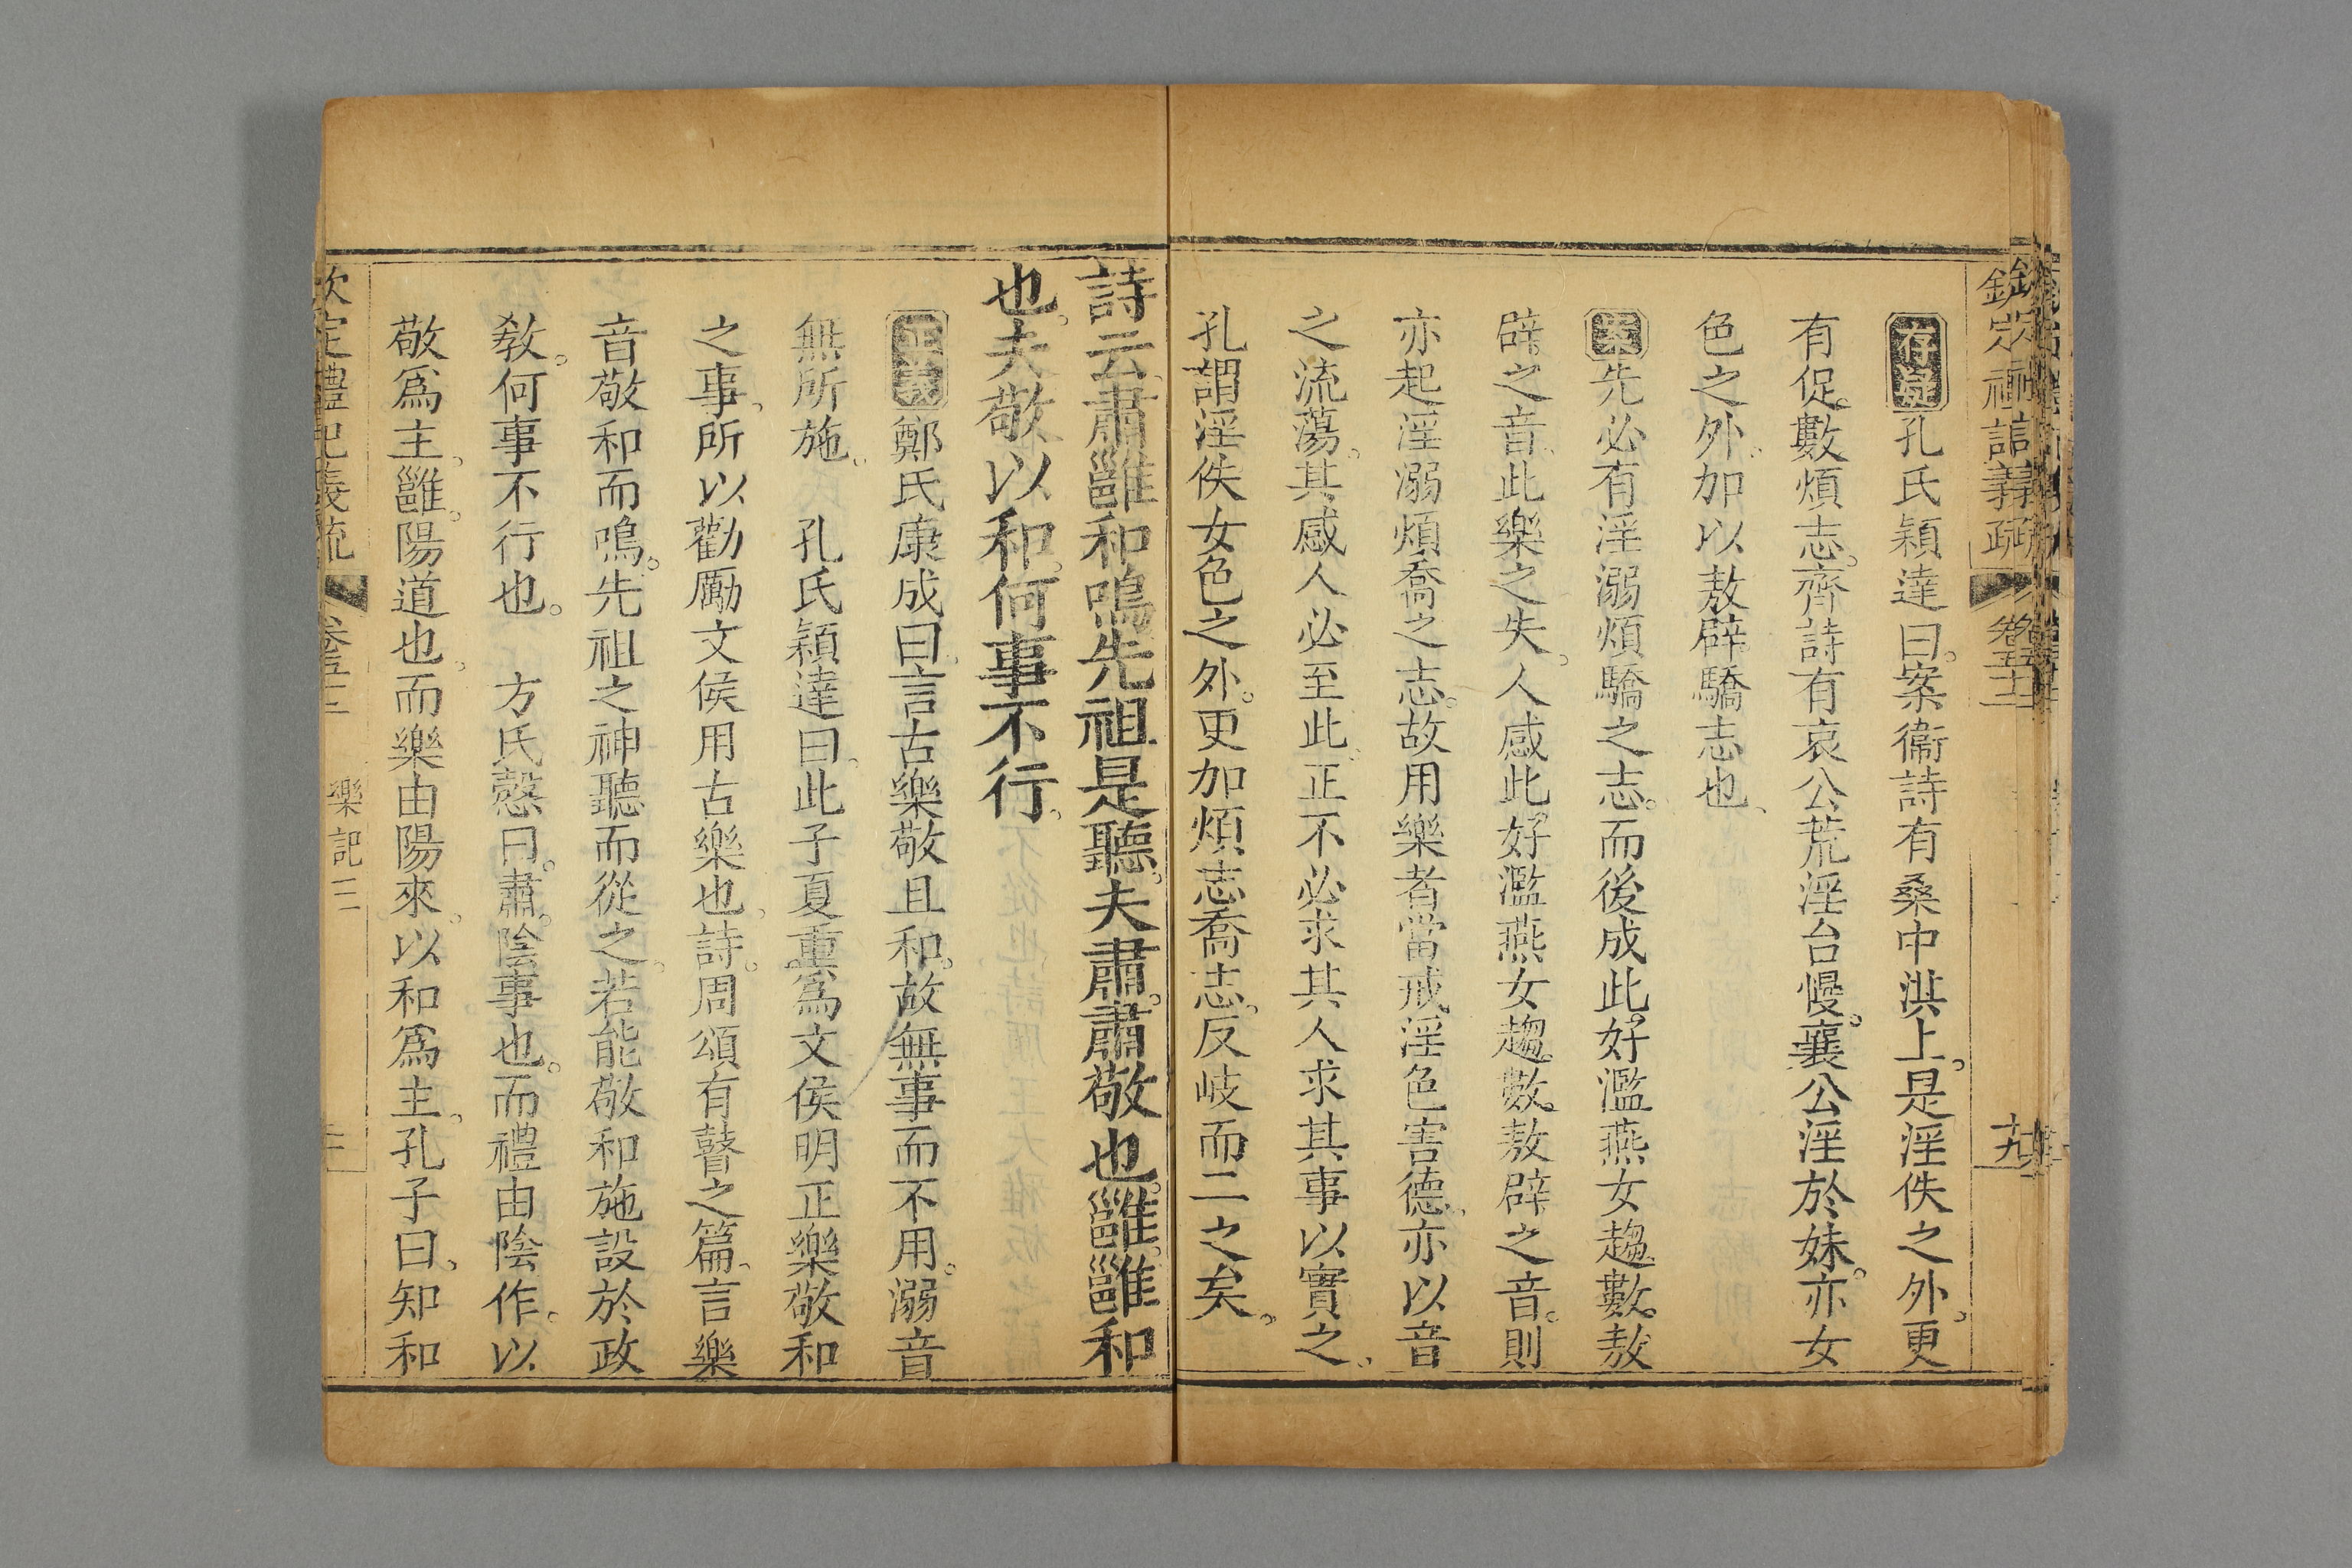 存疑孔氏穎達曰案衞詩有桑中淇上是淫佚之外更
有促數煩志齊詩有哀公荒淫台慢襄公淫於妹亦女
色之外加以敖辟驕志也
案先必有淫溺煩驕之志而後成此好濫燕女趨數敖
辟之音此樂之失人感此好濫燕女趨數敖辟之音則
亦起淫溺煩喬之志故用樂者當戒淫色害德亦以音
之流蕩其感人必至此正不必求其人求其事以實之
孔謂淫佚女色之外更加煩志喬志反岐而二之矣
詩云肅雝和鳴先祖是聽夫肅肅敬也雝雝和
也夫敬以和何事不行
正義鄭氏康成曰言古樂敬且和故無事而不用溺音
無所施 孔氏穎達曰此子夏重爲文侯明正樂敬和
之事所以勸勵文侯用古樂也詩周頌有瞽之篇言樂
音敬和而鳴先祖之神聽而從之若能敬和施設於政
教何事不行也 方氏慤曰肅陰事也而禮由陰作以
敬爲主雝陽道也而樂由陽來以和爲主孔子曰知和
欽定禮記義疏 卷五十二 樂記